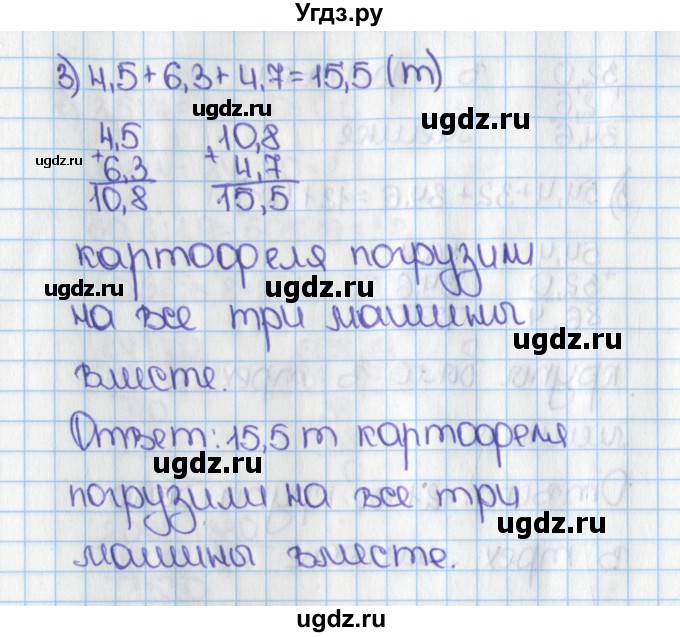 Угдз.ру
3) 4,5 + 6,3 + 4,7 = 15,5 (т)
4,5 10,8
+ 6,3 + 4,7
10,8 15,5
картофеля погрузили
на все три машины
вместе.
Ответ: 15,5 т картофеля
погрузили на все три
машины вместе.
ugdz.ru
ugdz.ru
ugdz.ru
ugdz.ru
ugdz.ru
ugdz.ru
ugdz.ru
ugdz.ru
ugdz.ru
ugdz.ru